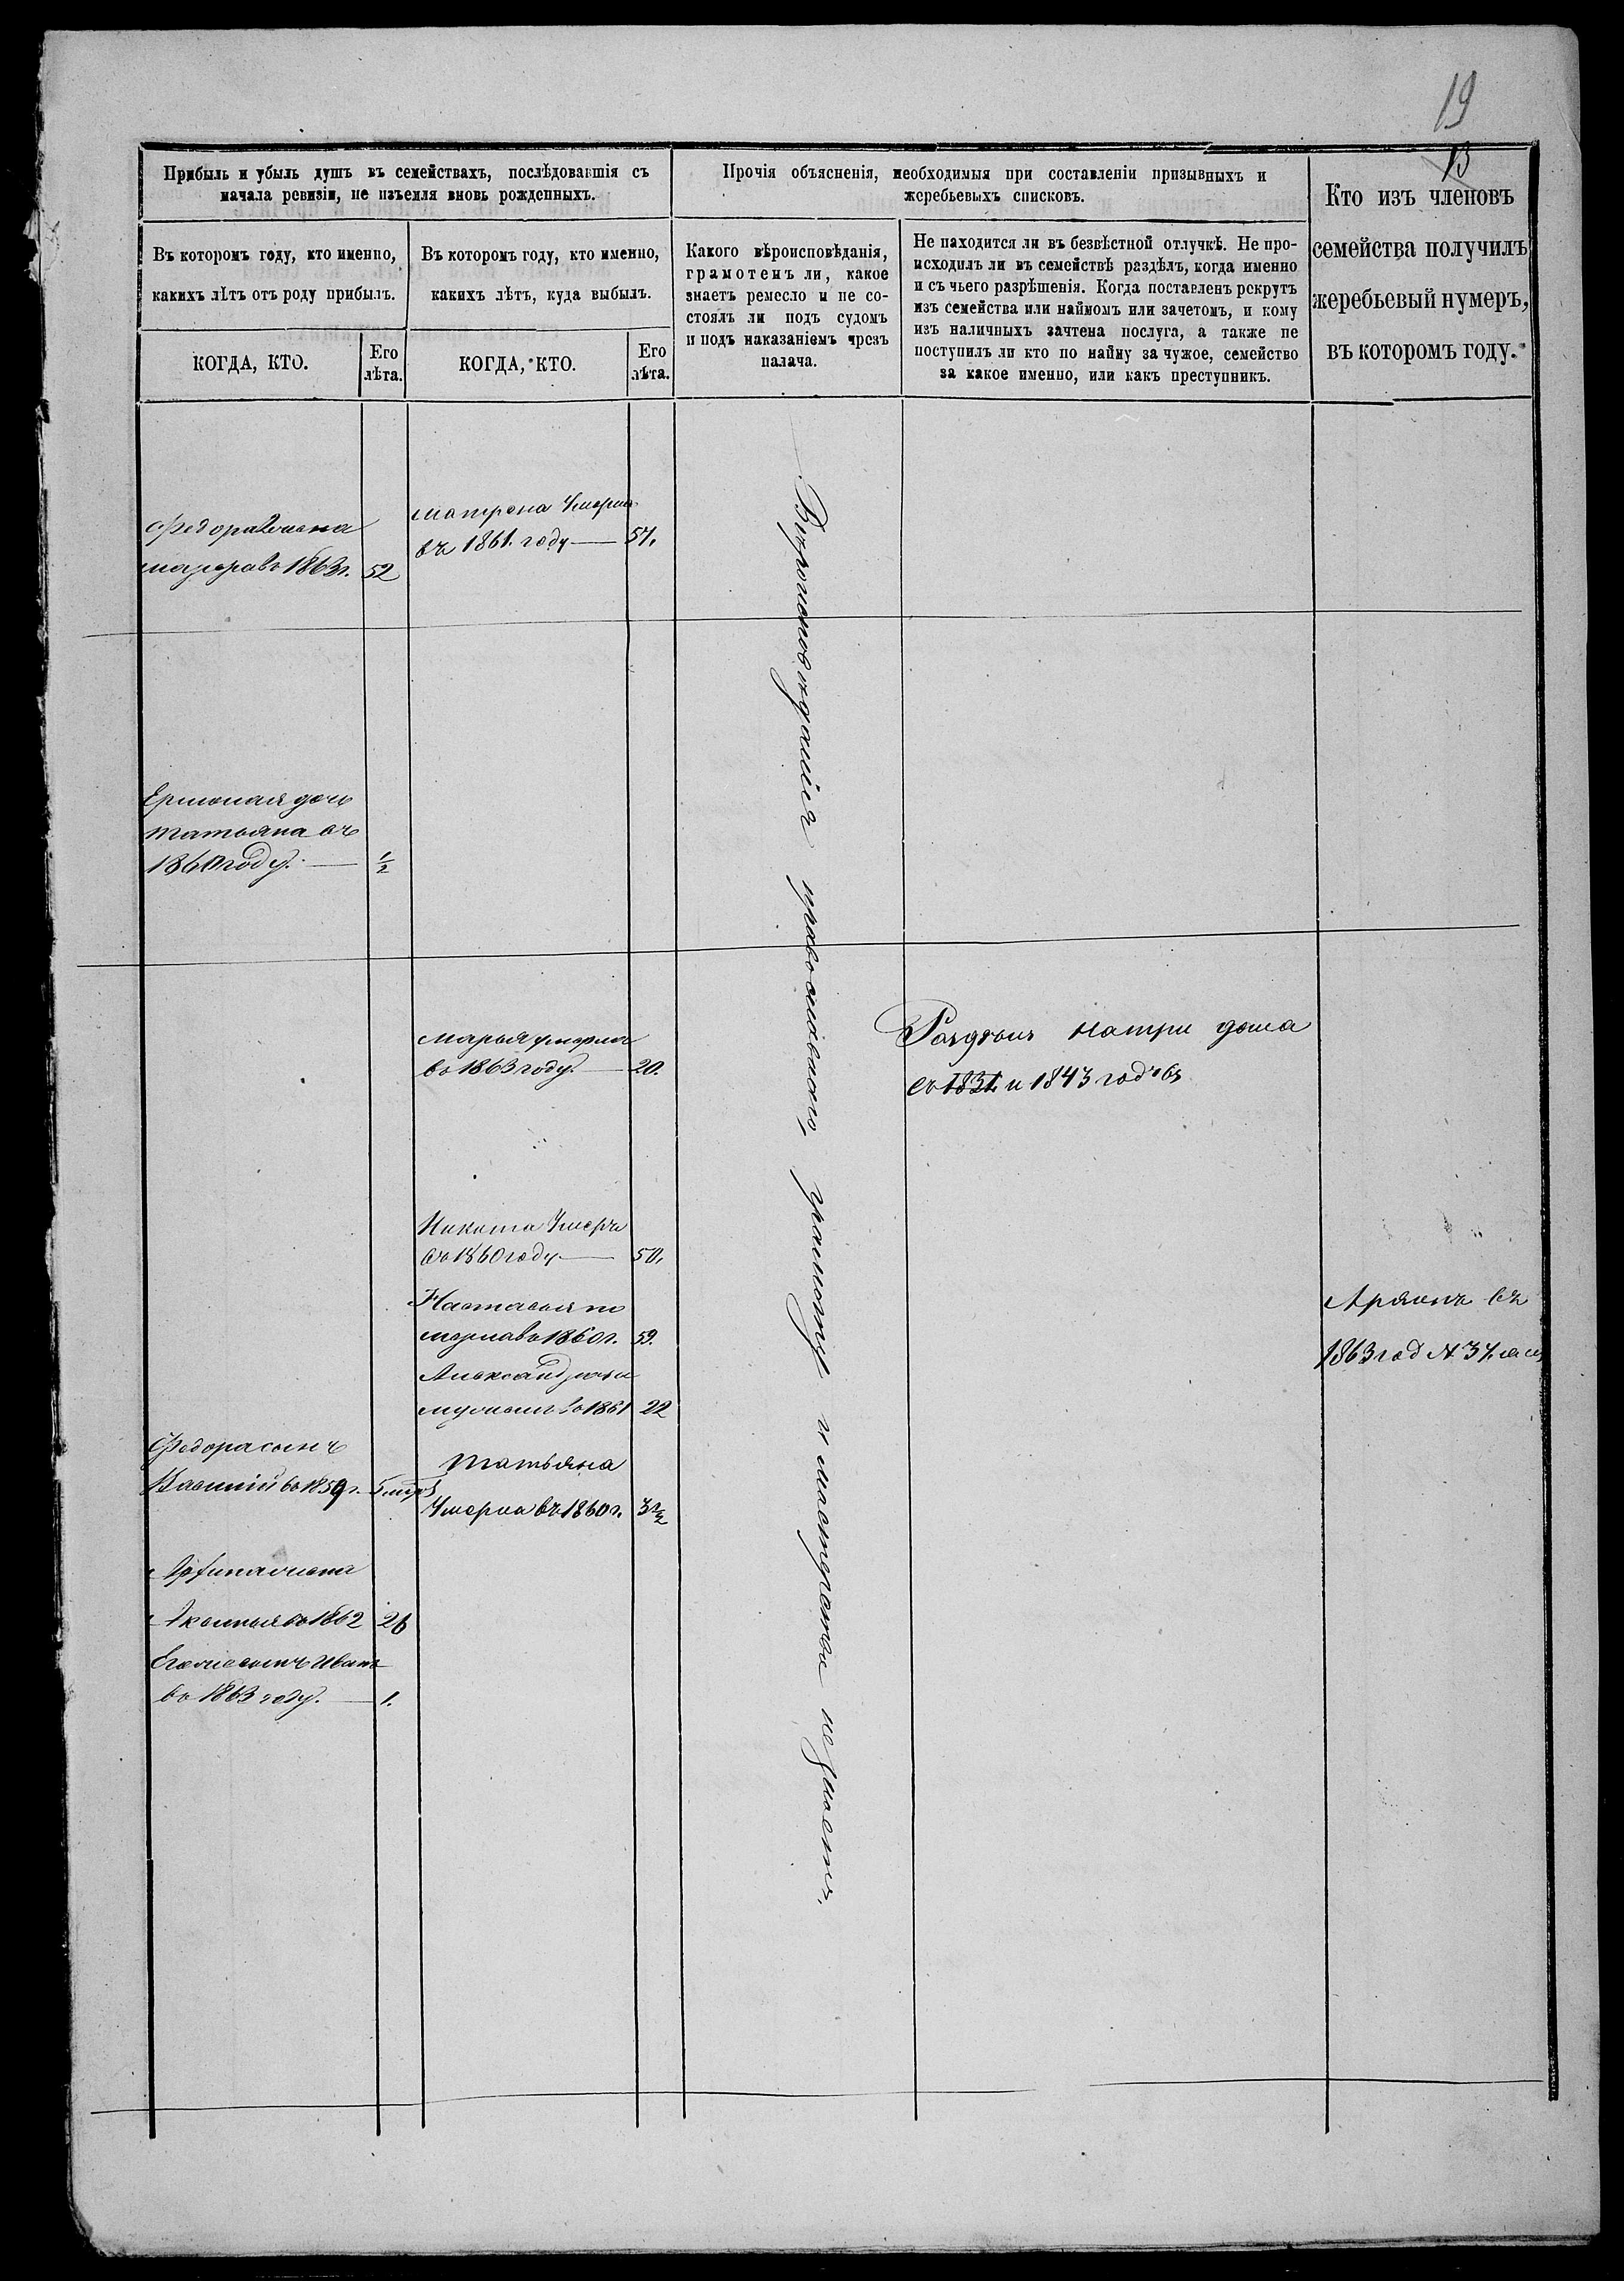 19
13
Прибыль и убыль душъ въ семействахъ, послѣдовавшія съ
начала ревизіи, не изъемля вновь рожденныхъ.
Прочія объясненія, необходимыя при составленіи призывныхъ и
жеребьевыхъ списковъ.
Кто изъ членовъ
семейства получилъ
жеребьевый нумеръ,
въ которомъ году.
Въ которомъ году, кто именно,
какихъ лѣтъ отъ роду прибылъ.
Въ которомъ году, кто именно,
какихъ лѣтъ, куда выбылъ.
Какого вѣроисповѣданія,
грамотенъ ли, какое
знаетъ ремесло и не со-
стоялъ ли подъ судомъ
и подъ наказаніемъ чрезъ
палача.
Не находится ли въ безвѣстной отлучкѣ. Не про-
исходилъ ли въ семействѣ раздѣлъ, когда именно
и съ чьего разрѣшенія. Когда поставленъ рекрутъ
изъ семейства или наймомъ или зачетомъ, и кому
изъ наличныхъ зачтена послуга, а также не
поступилъ ли кто по найму за чужое, семейство
за какое именно, или какъ преступникъ.
КОГДА, КТО.
Его
лѣта.
КОГДА, КТО.
Его
лѣта.
Федора жена
въ 1863 г. 52
матрона Умерла
въ 1861. году 57.
дочь
татьяна въ
1860 году. 1/2
Вѣроисповѣданія православнаго, грамоту и мастерства незнаетъ.
марья умерла
въ 1863 году. 20.
Раздѣлъ на три дома
въ 1831. и 1843 годѣхъ
Никита Умеръ
въ 1860 году 50.
Настасья по
мерла въ 1860 г. 59.
Александръ
въ 1861 22
Аряонъ въ
1863 год N 37.
Федора сынъ
Василій въ 1859 г.
татьяна
Умерла въ 1860 г. 3 1/2
жена
въ 1862 26
сынъ Иванъ
въ 1863 году. 1.